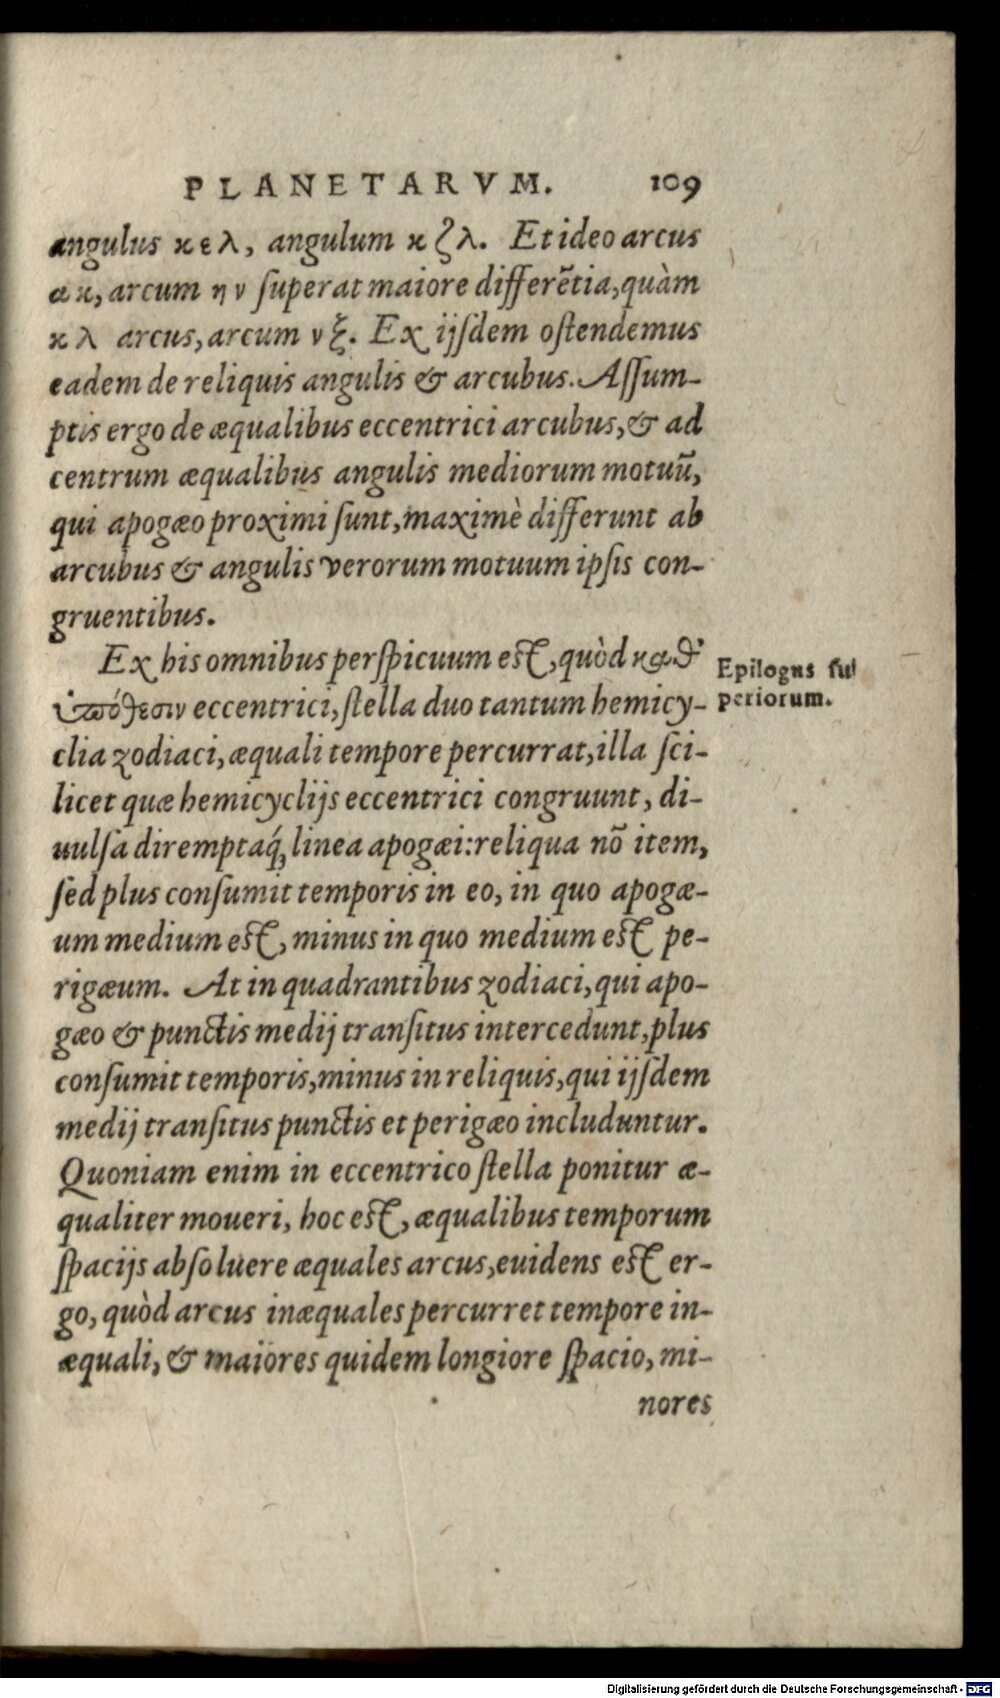 PLANETARVM. 109
angulus κ ε λ, angulum κ ζ λ. Et ideo arcus
α κ, arcum η ν ſuperat maiore differẽtia, quàm
κ λ arcus, arcum ν ξ. Ex ijſdem oſtendemus
eadem de reliquis angulis & arcubus. Aſſum-
ptis ergo de æqualibus eccentrici arcubus, & ad
centrum æqualibus angulis mediorum motuũ,
qui apogæo proximi ſunt, maximè differunt ab
arcubus & angulis verorum motuum ipſis con-
gruentibus.
Ex his omnibus perſpicuum eſt, quòd καθ'
ὑπόθεσιν eccentrici, ſtella duo tantum hemicy-
clia zodiaci, æquali tempore percurrat, illa ſci-
licet quæ hemicyclijs eccentrici congruunt, di-
uulſa diremptaq́; linea apogæi: reliqua nõ item,
ſed plus conſumit temporis in eo, in quo apogæ-
um medium eſt, minus in quo medium eſt pe-
rigæum. At in quadrantibus zodiaci, qui apo-
gæo & punctis medij tranſitus intercedunt, plus
conſumit temporis, minus in reliquis, qui ijſdem
medij tranſitus punctis et perigæo includuntur.
Quoniam enim in eccentrico ſtella ponitur æ-
qualiter moueri, hoc eſt, æqualibus temporum
ſpacijs abſoluere æquales arcus, euidens eſt er-
go, quòd arcus inæquales percurret tempore in-
æquali, & maiores quidem longiore ſpacio, mi-
nores
Epilogus ſu
periorum.
Digitalisierung gefördert durch die Deutsche Forschungsgemeinschaft - DFG